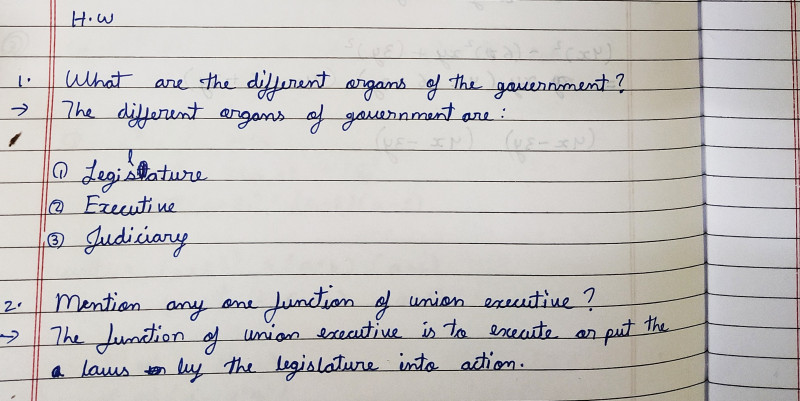 H.W
1. What are the different organs of the government?
→ The different organs of government are:
① Legislature
② Executive
③ Judiciary
2. Mention any one function of union executive?
→ The function of union executive is to execute or put the
laws by the legislature into action.